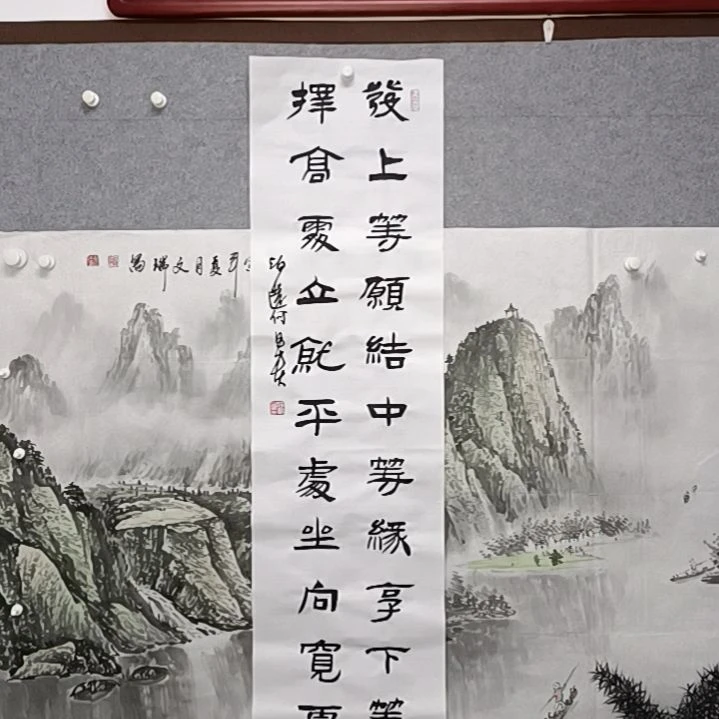 發上等願結中等緣享下等
擇高處立就平處坐向寬處
夏月文瑞